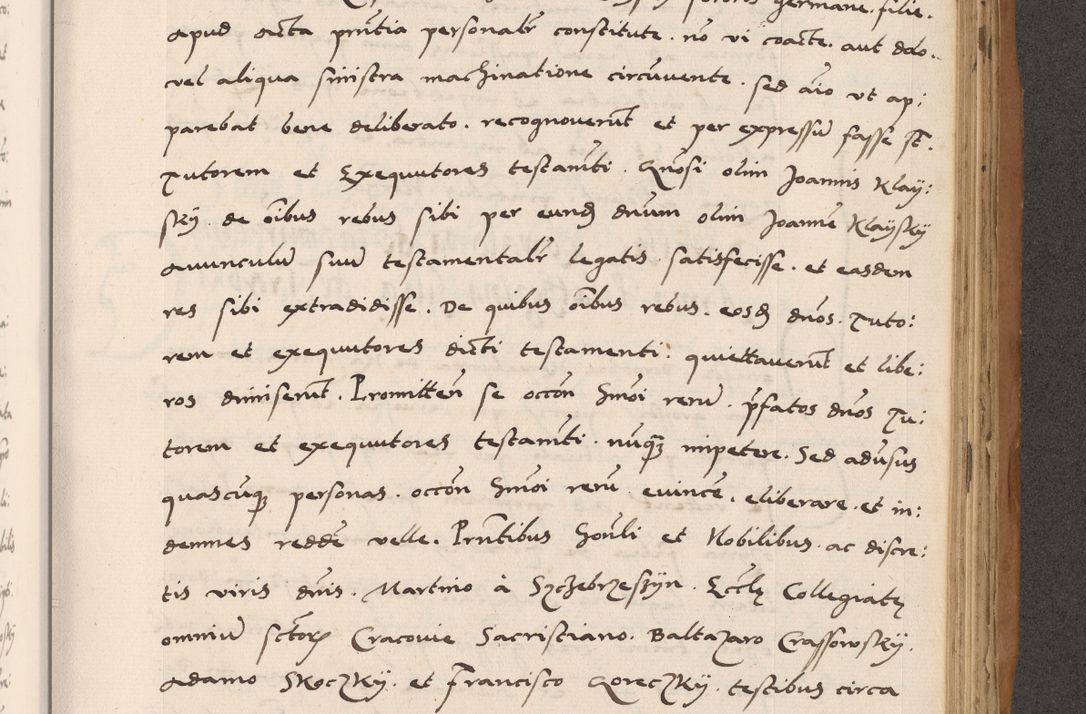 sorores germane. filie.
apud acta pntia personalr constitute. no vi coacte. aut dolo.
vel aliqua sinistra machinatione circuvente. sed aio vt ap:
parebat bene deliberato. recognoverut et per expressu fasse st.
Tutorem et Exequutores testamti. Gnosi olim Joannis Klay:
sky. de oibus rebus sibi per eund dnum olim Joanne Klaysky
avunculu suu testamentalr legatis satisfecisse. et easdem
res sibi extradidisse. De quibus oibus rebus. eosd dnos. Tuto:
rem et exequutores dicti testamenti. quiettaverut et libe:
ros dimiserut. Promitten se occon hmoi reru. pfatos dnos Tu:
torem et exequutores testamti. nuq impetere. Sed adusus
quascuq personas. occon hmoi reru evince. eliberare. et in:
demnes redde velle. Pntibus honli et Nobilibus ac discre:
tis viris dnis. Martino à Szczebrzeszyn. Eccle Collegiate
omniu sctor Cracovie Sacristiano. Baltazaro Crassowsky.
Adamo Skoczky. et Francisco Goreczky. testibus circa